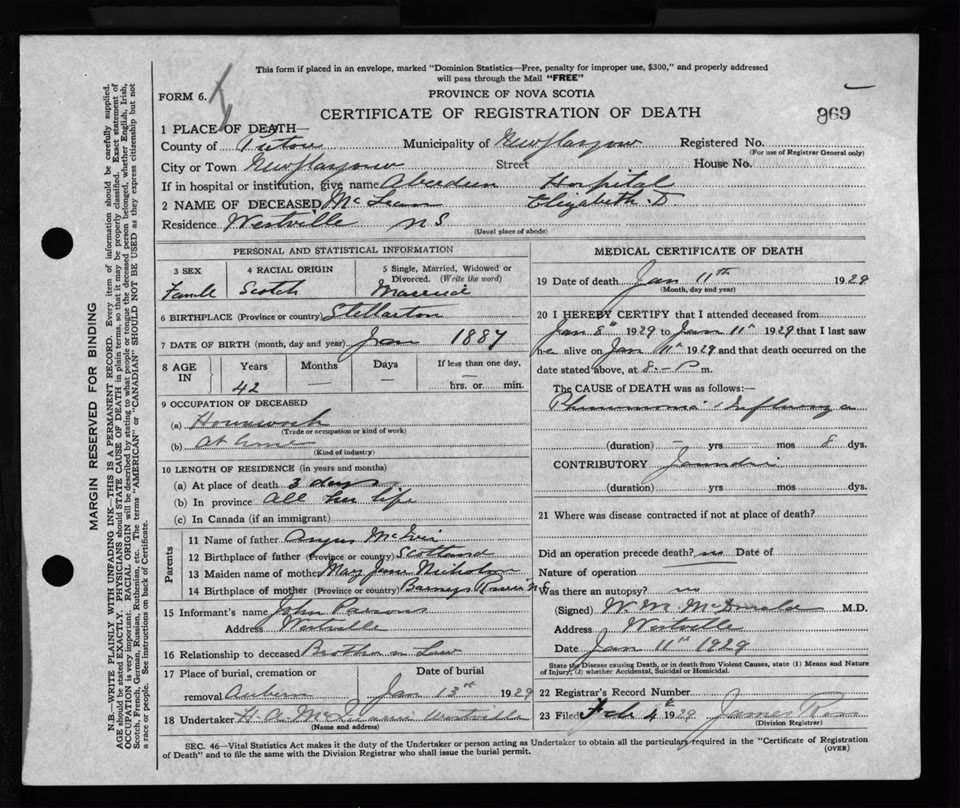 This form if placed in an envelope, marked "Dominion Statistics—Free, penalty for improper use, $300," and properly addressed
will pass through the Mail "FREE"
FORM 6.
PROVINCE OF NOVA SCOTIA
CERTIFICATE OF REGISTRATION OF DEATH
869
1 PLACE OF DEATH—
County of Pictou Municipality of New Glasgow Registered No.
(For use of Registrar General only)
City or Town New Glasgow Street House No.
If in hospital or institution, give name Aberdeen Hospital
2 NAME OF DECEASED McLean Elizabeth D
Residence Westville NS
(Usual place of abode)
MARGIN RESERVED FOR BINDING
N.B.—WRITE PLAINLY WITH UNFADING INK—THIS IS A PERMANENT RECORD. Every item of information should be carefully supplied.
AGE should be stated EXACTLY. PHYSICIANS should STATE CAUSE OF DEATH in plain terms, so that it may be properly classified. Exact statement of
OCCUPATION is very important. RACIAL ORIGIN will be described by stating to what people or tongue the deceased person belonged, whether English, Irish,
Scotch, French, German, Russian, Ruthenian, etc. The terms "AMERICAN" or "CANADIAN" SHOULD NOT BE USED as they express citizenship but not
a race or people. See instructions on back of Certificate.
PERSONAL AND STATISTICAL INFORMATION
3 SEX
Female
4 RACIAL ORIGIN
Scotch
5 Single, Married, Widowed or
Divorced. (Write the word)
Married
6 BIRTHPLACE (Province or country) Stellarton
7 DATE OF BIRTH (month, day and year) Jan 1887
8 AGE
IN
Years
42
Months
—
Days
—
If less than one day,
hrs. or min.
9 OCCUPATION OF DECEASED
(a) Housework
(Trade or occupation or kind of work)
(b) At home
(Kind of industry)
10 LENGTH OF RESIDENCE (in years and months)
(a) At place of death 3 days
(b) In province All her life
(c) In Canada (if an immigrant)
Parents
11 Name of father Angus
12 Birthplace of father (Province or country) Scotland
13 Maiden name of mother Mary Jane Nicholson
14 Birthplace of mother (Province or country) Barneys River N.S.
15 Informant's name John Parsons
Address Westville
16 Relationship to deceased Brother in Law
17 Place of burial, cremation or
removal Auburn
Date of burial
Jan 13th 1929
18 Undertaker H A Westville
(Name and address)
MEDICAL CERTIFICATE OF DEATH
19 Date of death Jan 11th 1929
(Month, day and year)
20 I HEREBY CERTIFY that I attended deceased from
Jan 8th 1929 to Jan 11th 1929 that I last saw
her alive on Jan 11th 1929 and that death occurred on
date stated above, at 8.— P m.
The CAUSE OF DEATH was as follows:—
Pneumonia Influenza
(duration) — yrs mos 8 dys.
CONTRIBUTORY Jaundice
(duration) yrs mos dys.
21 Where was disease contracted if not at place of death?
Did an operation precede death? no Date of
Nature of operation
Was there an autopsy? no
(Signed) W. M. McDonald M.D.
Address Westville
Date Jan 11th 1929
State the Disease causing Death, or in death from Violent Causes, state (1) Means and Nature
of Injury, (2) whether Accidental, Suicidal or Homicidal.
22 Registrar's Record Number
23 Filed Feb 4th 1929 James Ross
(Division Registrar)
SEC. 46—Vital Statistics Act makes it the duty of the Undertaker or person acting as Undertaker to obtain all the particulars required in the "Certificate of Registration
of Death" and to file the same with the Division Registrar who shall issue the burial permit.
(OVER)